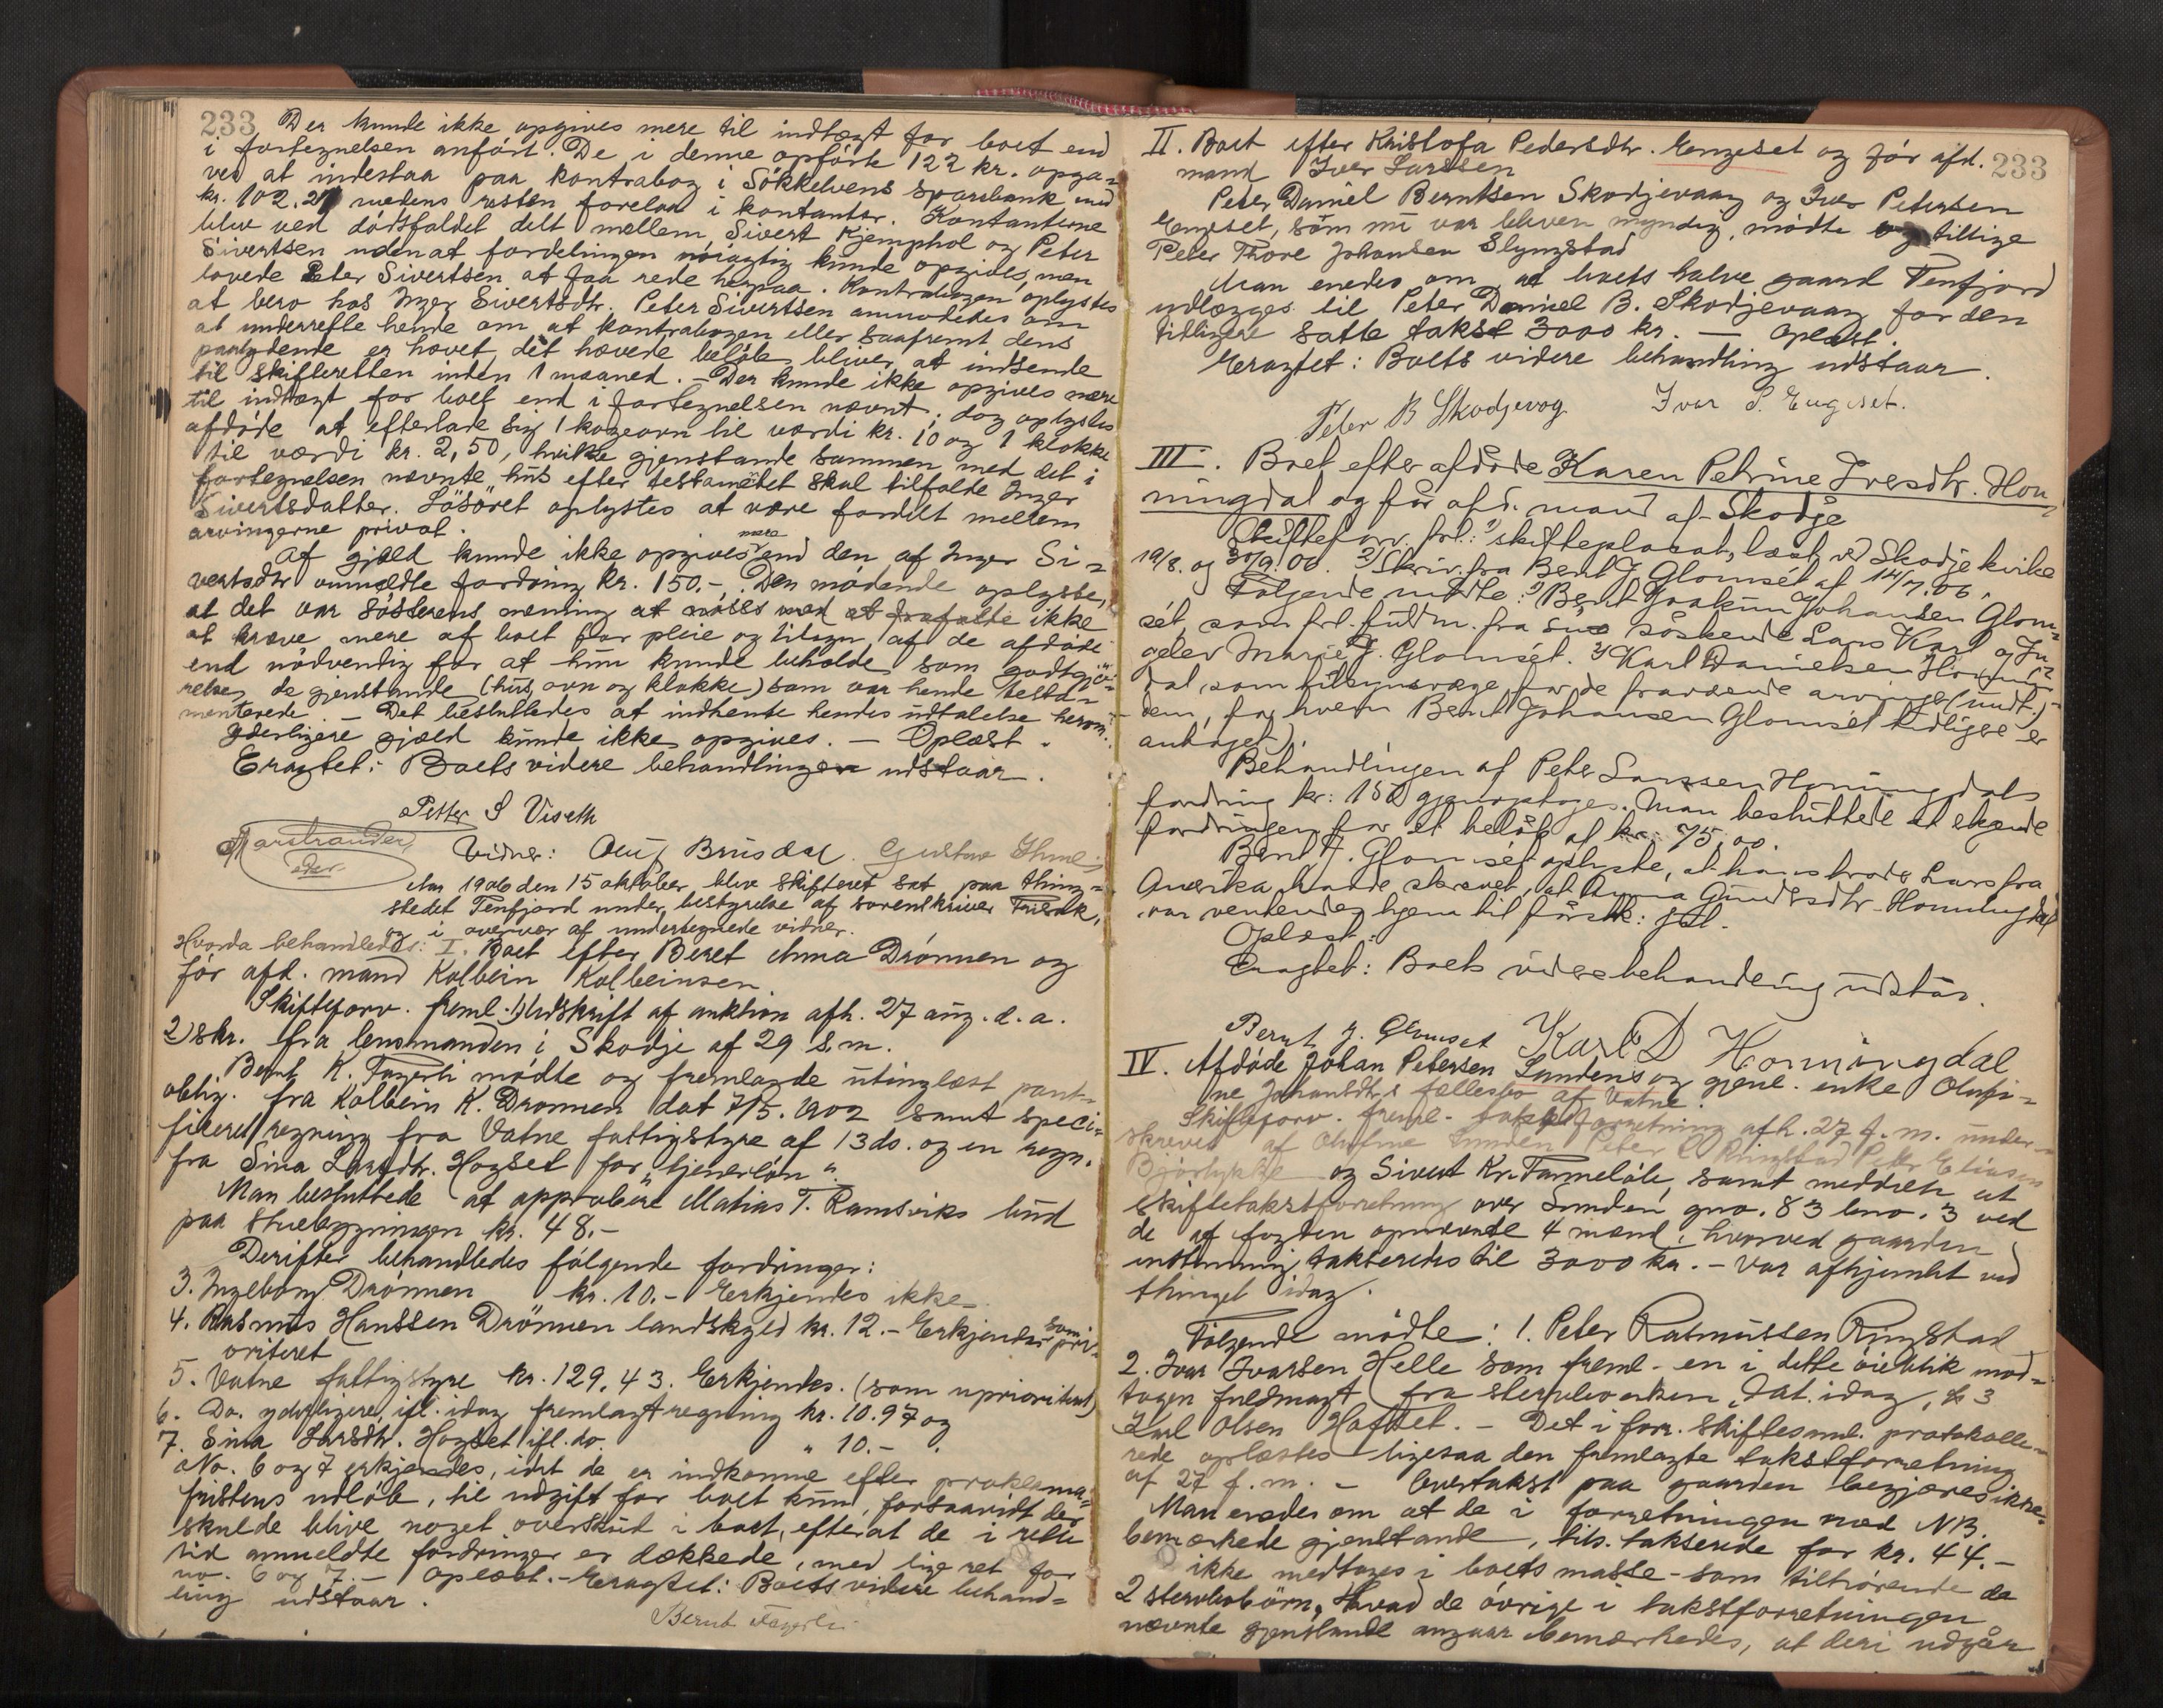 233 Der kunde ikke opgives mere til indtægt for boet end
i fortegnelsen anført. De i denne opførte 122 kr. opga-
ves at indestaa paa kontrabog i Søkkelvens sparebank med
kr. 102.21 medens resten forelaa i kontanter. Kontanterne
blev ved dødsfaldet delt mellem Sivert Kjemphol og Peter
Sivertsen uden at fordelingen nøiagtig kunde opgives, men
lovede Peter Sivertsen at faa rede herpaa. Kontrabogen oplystes
at bero hos Inger Sivertsdtr. Peter Sivertsen anmodedes om
at underrette hende om at kontrabogen eller saafremt dens
paalydende er hævet det hævede beløb bliver at indsende
til skifteretten inden 1 maaned. - Der kunde ikke opgives mere
til indtægt for boet end i fortegnelsen nævnt; dog oplystes
afdøde at efterlade sig 1 kogeovn til værdi kr. 10 og 1 klokke
til værdi kr. 2,50, hvilke gjenstande sammen med det i
fortegnelsen nævnte hus efter testamentet skal tilfalde Inger
Sivertsdatter. Løsøret oplystes at være fordelt mellem
arvingerne privat.
Af gjæld kunde ikke opgives mere end den af Inger Si-
vertsdtr anmeldte fordring kr. 150.-. Den mødende oplyste,
at det var søsterens mening at ikke
at kræve mere af boet for pleie og tilsyn af de afdøde
end nødvendig for at hun kunde beholde som godtgjø-
relse de gjenstande (hus, ovn og klokke) som var hende testa-
menterede. - Det besluttedes at indhente hendes udtalelse herom.
Yderligere gjæld kunde ikke opgives. - Oplæst.
Eragtet: Boets videre behandling udstaar.
Petter S Viseth
Marstrander
Vidner: Oluf Brusdal. Gustav
Aar 1906 den 15 oktober blev skifteret sat paa thing-
stedet Tenfjord under bestyrelse af sorenskriver
og i overvær af undertegnede vidner.
Hvorda behandledes: I. Boet efter Beret Anna Drønnen og
før afd. mand Kolbein Kolbeinsen.
Skifteforv. freml. 1) Udskrift af auktion afh. 27 aug. d.a.
2) skr. fra lensmanden i Skodje af 29 s.m.
Bernt K. Fagerli mødte og fremlagde utinglæst pant-
oblig. fra Kolbein K. Drønnen dat 7/5. 1902 samt speci-
ficeret regning fra Vatne fattigstyre af 13 ds. og en regn.
fra Sina Larsdtr. Hogset for "tjenerløn".
Man besluttede at approbere Mathias T. Ramsviks bud
paa stuebygningen kr. 48.-
Derefter behandledes følgende fordringer:
3. Ingeborg Drønnen kr. 10.- Erkjendes ikke.
4. Rasmus Hanssen Drønnen landskyld kr. 12.- Erkjendes som pri-
oriteret
5. Vatne fattigstyre kr. 129.43. Erkjendes. (som uprioriteret)
6. Do. yderligere, ifl. idag fremlagt regning kr. 10.97 og
7. Sina Larsdtr. Hogset ifl. do. " 10.- .
No. 6 og 7 erkjendes, idet de er indkomne efter proklama-
fristens udløb, til udgift for boet kun, forsaavidt der
skulde blive noget overskud i boet, efterat de i rette
tid anmeldte fordringer er dækkede, med lige ret for
no. 6 og 7. - Oplæst. - Eragtet: Boets videre behand-
ling udstaar.
Bernt Fagerli
II. Boet efter Kristofa Pedersdtr. Engeset og før afd. 233
mand Iver Larssen
Peter Daniel Berntsen Skodjevaag og Iver Petersen
Engeset, som nu var bleven myndig, mødte og tillige
Peter Thore Johansen Slyngstad
Man enedes om at boets halve gaard Tenfjord
udlægges til Peter Daniel B. Skodjevaag for den
tidligere satte takst 3000 kr. - Oplæst.
Eragtet: Boets videre behandling udstaar.
Peter B Skodjevog Ivar P. Engeset.
III. Boet efter afdøde Karen Petrine Iversdtr. Hon-
ningdal og før afd. mand af Skodje
Skifteforv. frl: 1) skifteplacat, læst v/ Skodje kirke
19/8. og 30/9.06. 2) Skriv. fra Bent J. Glomset af 14/7.06.
Følgende mødte: 1) Bent Joakim Johansen Glom-
set, som frl. fuldm. fra sine søskende Lars Karl og In-
gelev Marie J. Glomset. 2) Karl Danielsen Honning-
dal, som tilsynsværge for de fraværende arvinger (undt.
dem, for hvem Bernt Johansen Glomset tidligere er
antaget).
Behandlingen af Peter Larssen Honningdals
fordring kr: 150 gjenoptoges. Man besluttede at erkjende
fordringen for et beløb af kr. 75,00.
Bent J. Glomset oplyste, at hans broder Lars fra
Amerika havde skrevet, at Anna Gundersdtr. Honningdal
var ventendes hjem til førstk: jul.
Oplæst.
Eragtet: Boets videre behandling udstår.
Bernt J. Glomset Karl D Honningdal
IV. Afdøde Johan Petersen Sundens og gjenl. enke Olufi-
ne Johansdtr.s fællesbo af Vatne.
Skifteforv. freml. takstforretning afh. 27 f.m. under-
skrevet af Olufine Sunden Peter R Ringstad Petter Eliasen
Bjørlykke og Sivert Kr. Tammeløb, samt meddelte at
skiftetakstforretning over Sunden gno. 83 bno. 3 ved
de af fogden opnævnte 4 mænd, hvorved gaarden
enstemmig taksteredes til 3000 kr. - var afhjemlet ved
thinget idag.
Følgende mødte: 1. Peter Rasmussen Ringstad
2. Ivar Ivarsen Helle som freml. en i dette øieblik mod-
tagen fuldmagt fra stervboenken, dat. idag, & 3
Karl Olsen Hafstet. - Det i forr. skiftesaml. protokolle-
rede oplæstes ligesaa den fremlagte takstforretning
af 27 f.m. - Overtakst paa gaarden begjæres ikke.
Man enedes om at de i forretningen med NB.
bemærkede gjenstande, tils. takserede for kr. 44.-
ikke medtages i boets masse - som tilhørende de
2 sterbobørn. Hvad de øvrige i takstforretningen
nævnte gjenstande angaar bemærkedes, at deri udgår